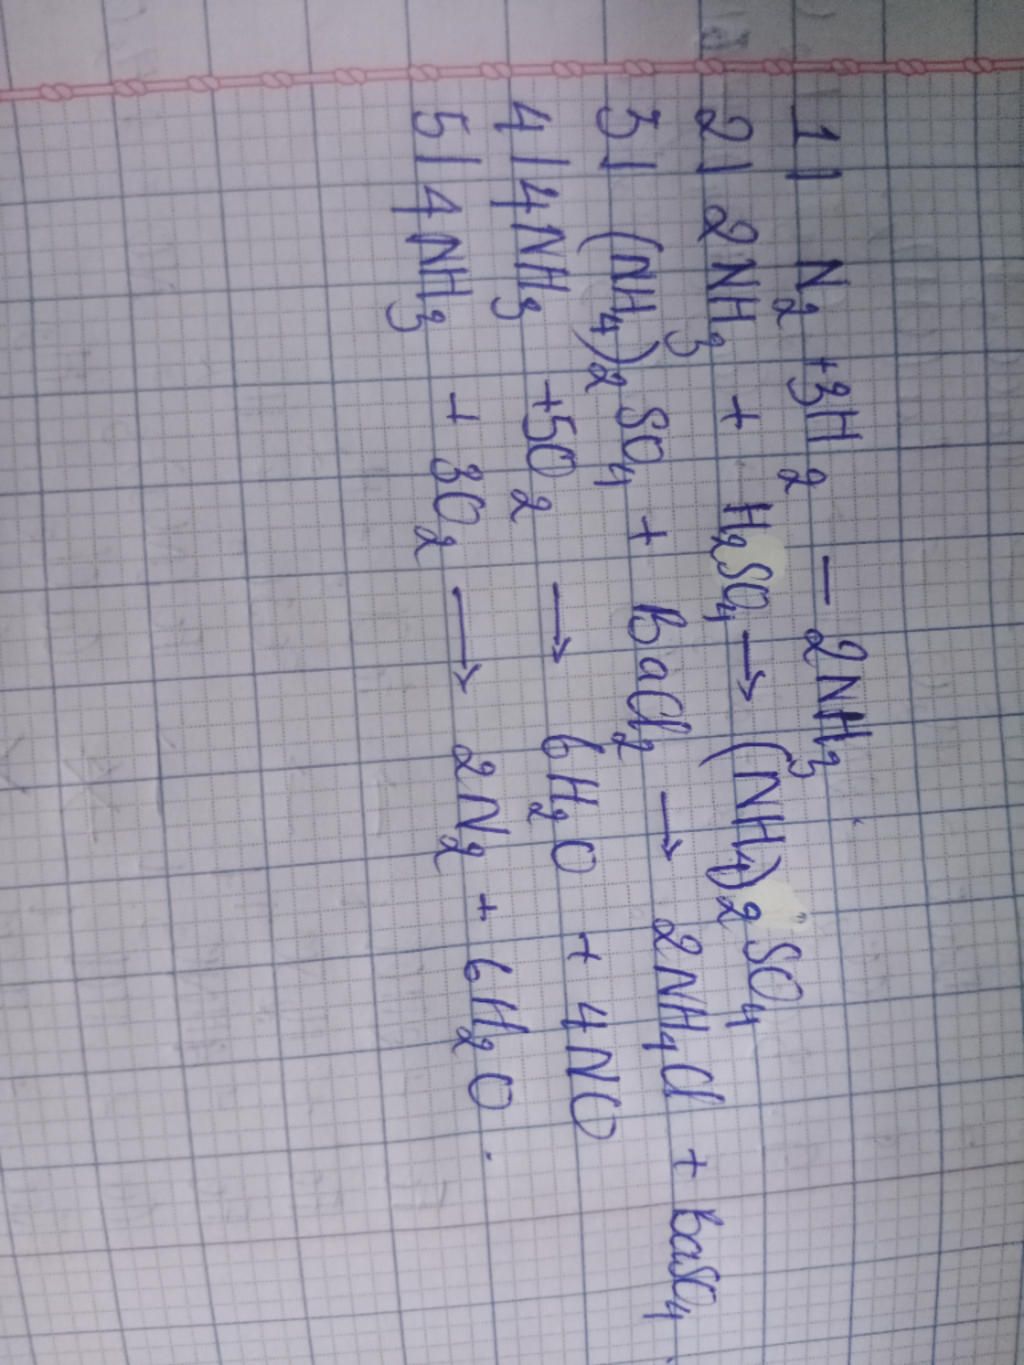 1) N₂ + 3H₂ – 2NH₃
2) 2NH₃ + H₂SO₄ → (NH₄)₂SO₄
3) (NH₄)₂SO₄ + BaCl₂ → 2NH₄Cl + BaSO₄
4) 4NH₃ + 5O₂ → 6H₂O + 4NO
5) 4NH₃ + 3O₂ → 2N₂ + 6H₂O.